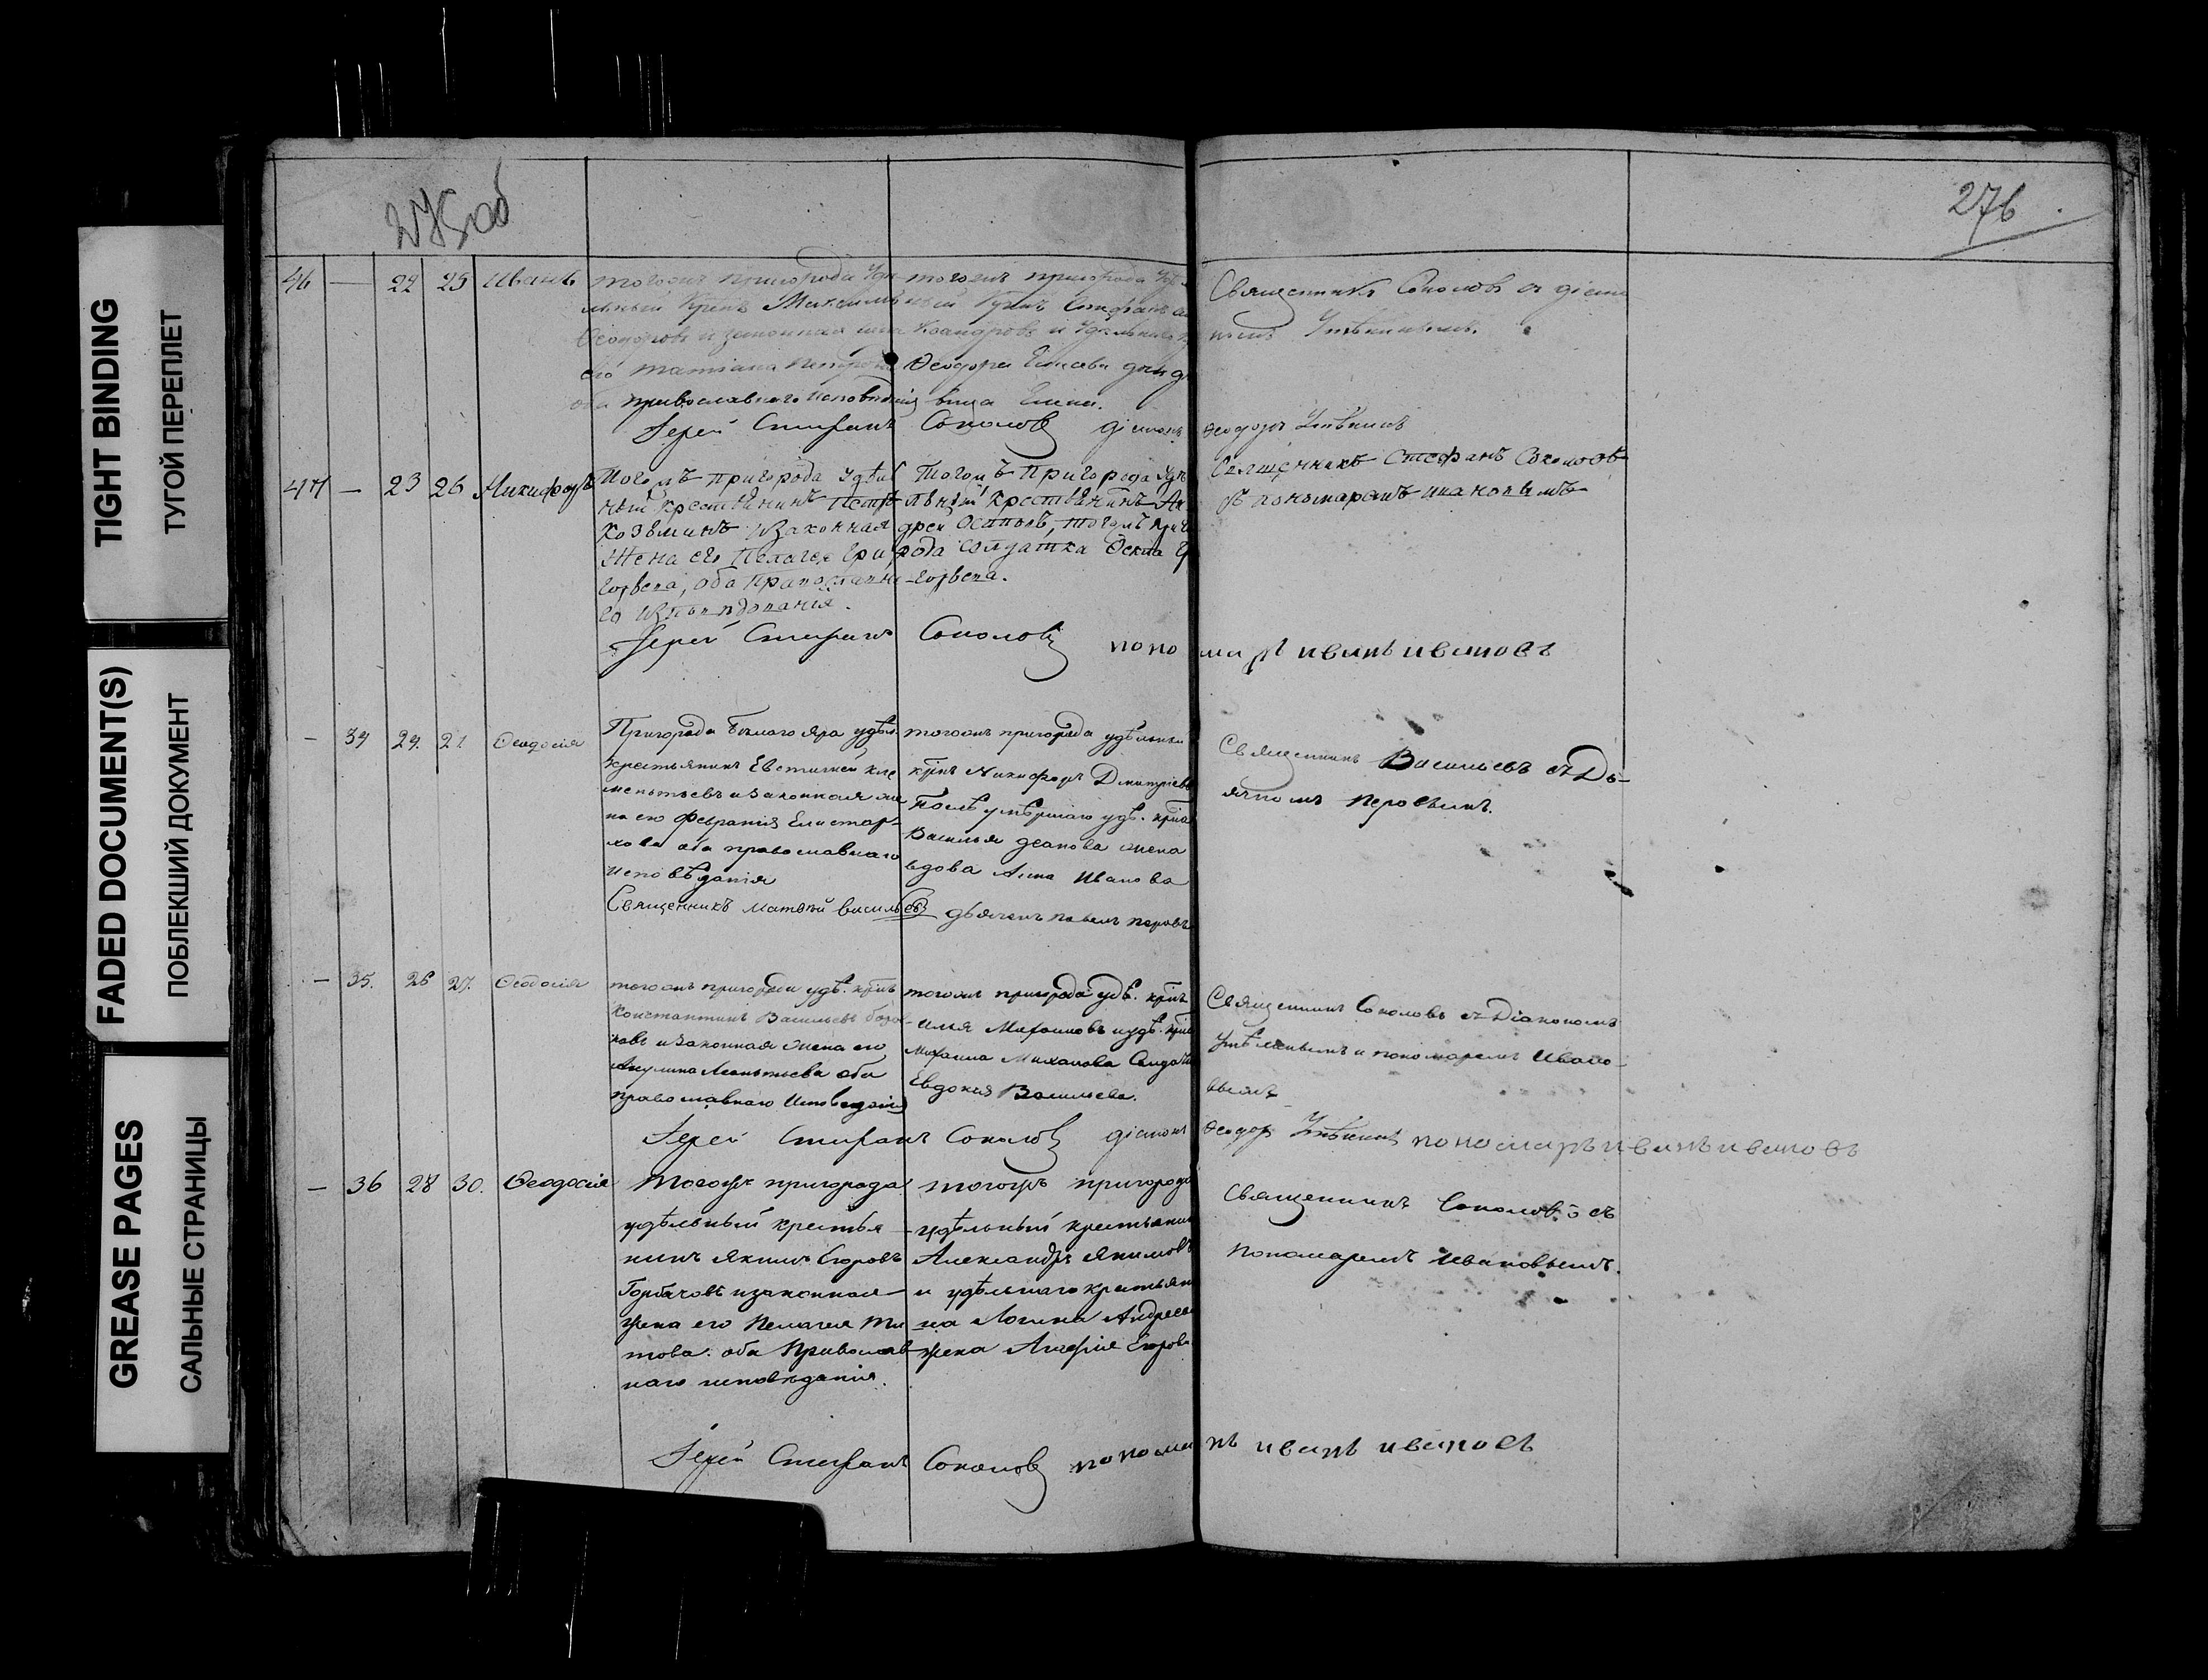 TIGHT BINDING
ТУГОЙ ПЕРЕПЛЕТ
FADED DOCUMENT(S)
ПОБЛЕКШИЙ ДОКУМЕНТ
GREASE PAGES
САЛЬНЫЕ СТРАНИЦЫ
275 об
276
46 — 22 25 Иванъ
тогожъ пригорода Удѣ-
льный Крнъ Максимъ
Ѳеодоровъ и законная жена
его Татиана Петрова
оба православнаго исповѣданія
тогожъ пригорода Удѣ-
льный Крнъ Стефанъ
Ѳеодора Елисеева
вица Елена.
Священникъ Соколовъ съ діако-
номъ Утѣхинымъ.
Іерей Стефанъ Соколовъ діаконъ Ѳеодоръ Утѣхинъ
47 — 23 26 Никифоръ
Тогожъ пригорода удѣль
ный крестьянинъ Петръ
Козьминъ и законная
жена его Пелагея Гри
горьева, оба православна
го исповѣданія.
Тогожъ пригорода Удѣ
льный крестьянинъ Ан
дрей Осиповъ, тогожъ приго
рода солдатка Ѳекла Гр
горьева.
Священникъ Стефанъ Соколовъ
съ пономаремъ Ивановымъ
Іерей Стефанъ Соколовъ пономарь иванъ ивановъ
— 34 24. 21 Ѳеодосія
Пригорода Бѣлаго яра удѣл.
крестьянинъ Евстигней Кле
ментьевъ и законная же
на его Февранія Елистар-
хова оба православнаго
исповѣданія
тогожъ пригорода удѣльный
крнъ Никифоръ Дмитріевъ
Послѣ умѣршаго удѣ. крна
Василья жена
вдова Анна Иванова
Священникъ Васильевъ съ Дь-
ячкомъ Перовымъ.
Священникъ Матвѣй Васильевъ дьячекъ Павелъ Перовъ
— 35. 26 27. Ѳеодосія
тогожъ пригорода удѣ. крнъ
Константинъ Васильевъ
ковъ и законная жена его
Акулина Леонтьева оба
православнаго Исповѣданія
тогожъ пригорода удѣ. крнъ
Илья Михаиловъ и удѣ. крна
Михаила Михаилова
Евдокія Васильева.
Священникъ Соколовъ съ Діакономъ
Утѣхинымъ и пономаремъ Ивано-
вымъ
Іерей Стефанъ Соколовъ діаконъ Ѳеодоръ Утѣхинъ пономарь иванъ ивановъ
— 36 28 30. Ѳеодосія
Тогожъ пригорода
удѣльный крестья-
нинъ Якимъ Егоровъ
Горбачовъ и законная
жена его Пелагея Ти
това. оба Православ
наго исповѣданія.
тогожъ пригорода
удѣльный крестьянинъ
Александръ Якимовъ
и удѣльнаго крестьяни
на Логина Андреева
жена Агафія Егорова
Священникъ Соколовъ съ
пономаремъ Ивановымъ.
Іерей Стефанъ Соколовъ пономарь иванъ ивановъ